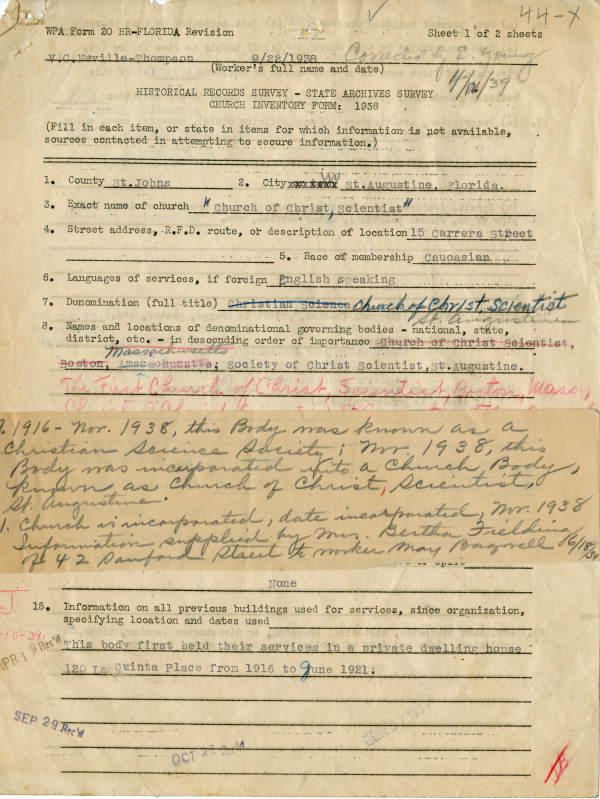 44-X
WPA Form 20 HR-FLORIDA Revision Sheet 1 of 2 sheets
V.C.Neville-Thompson 9/22/1938 Corrected by E. Young
(Worker's full name and date) 4/26/39
HISTORICAL RECORDS SURVEY - STATE ARCHIVES SURVEY
CHURCH INVENTORY FORM: 1938
(Fill in each item, or state in items for which information is not available,
sources contacted in attempting to secure information.)
1. County St.Johns 2. City St.Augustine, Florida.
3. Exact name of church "Church of Christ, Scientist"
4. Street address, R.F.D. route, or description of location 15 Carrera Street
5. Race of membership Caucasian
6. Languages of services, if foreign English speaking
7. Denomination (full title) Christian Science Church of Christ, Scientist
St. Augustine
8. Names and locations of denominational governing bodies - national, state,
district, etc. - in descending order of importance Church of Christ Scientist,
Massachusetts
Boston, Amssachusetts; Society of Christ Scientist,St.Augustine.
The First Church of Christ, Scientist, Boston, Mass.,
9. 1916 - Nov. 1938, this Body was known as a
Christian Science Society; Nov. 1938, this
Body was incorporated into a Church Body,
known as Church of Christ, Scientist,
St. Augustine.
1. Church is incorporated, date incorporated, Nov. 1938
Information supplied by Mrs. Bertha Fielding
of 42 Street to worker May Bagwell 6/18/39
None
15. Information on all previous buildings used for services, since organization,
specifying location and dates used
This body first held their services in a private dwelling house
120 La Quinta Place from 1916 to June 1921.
-10-39.
APR 19 Rec'd
SEP 29 Rec'd
OCT